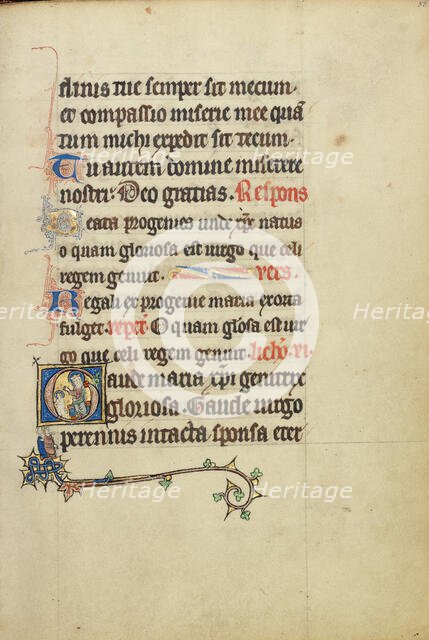 clinis tue semper sit mecum·
et compassio miserie mee quā
tum michi expedit sit tecum·
Tu autem domine miserere
nostri· Deo gratias· Respons
Beata progenies unde xp̄c natus
o quam gloriosa est uirgo que celi
regem genuit· vers·
Regali ex progenie maria exorta
fulget· repet· O quam gl̄osa est uir
go que celi regem genuit·
Gaude maria xp̄i genitrix
gloriosa· Gaude uirgo
perennis intacta sponsa eter
Heritage
Heritage
Heritage
Heritage
Heritage
Heritage
Heritage
Heritage